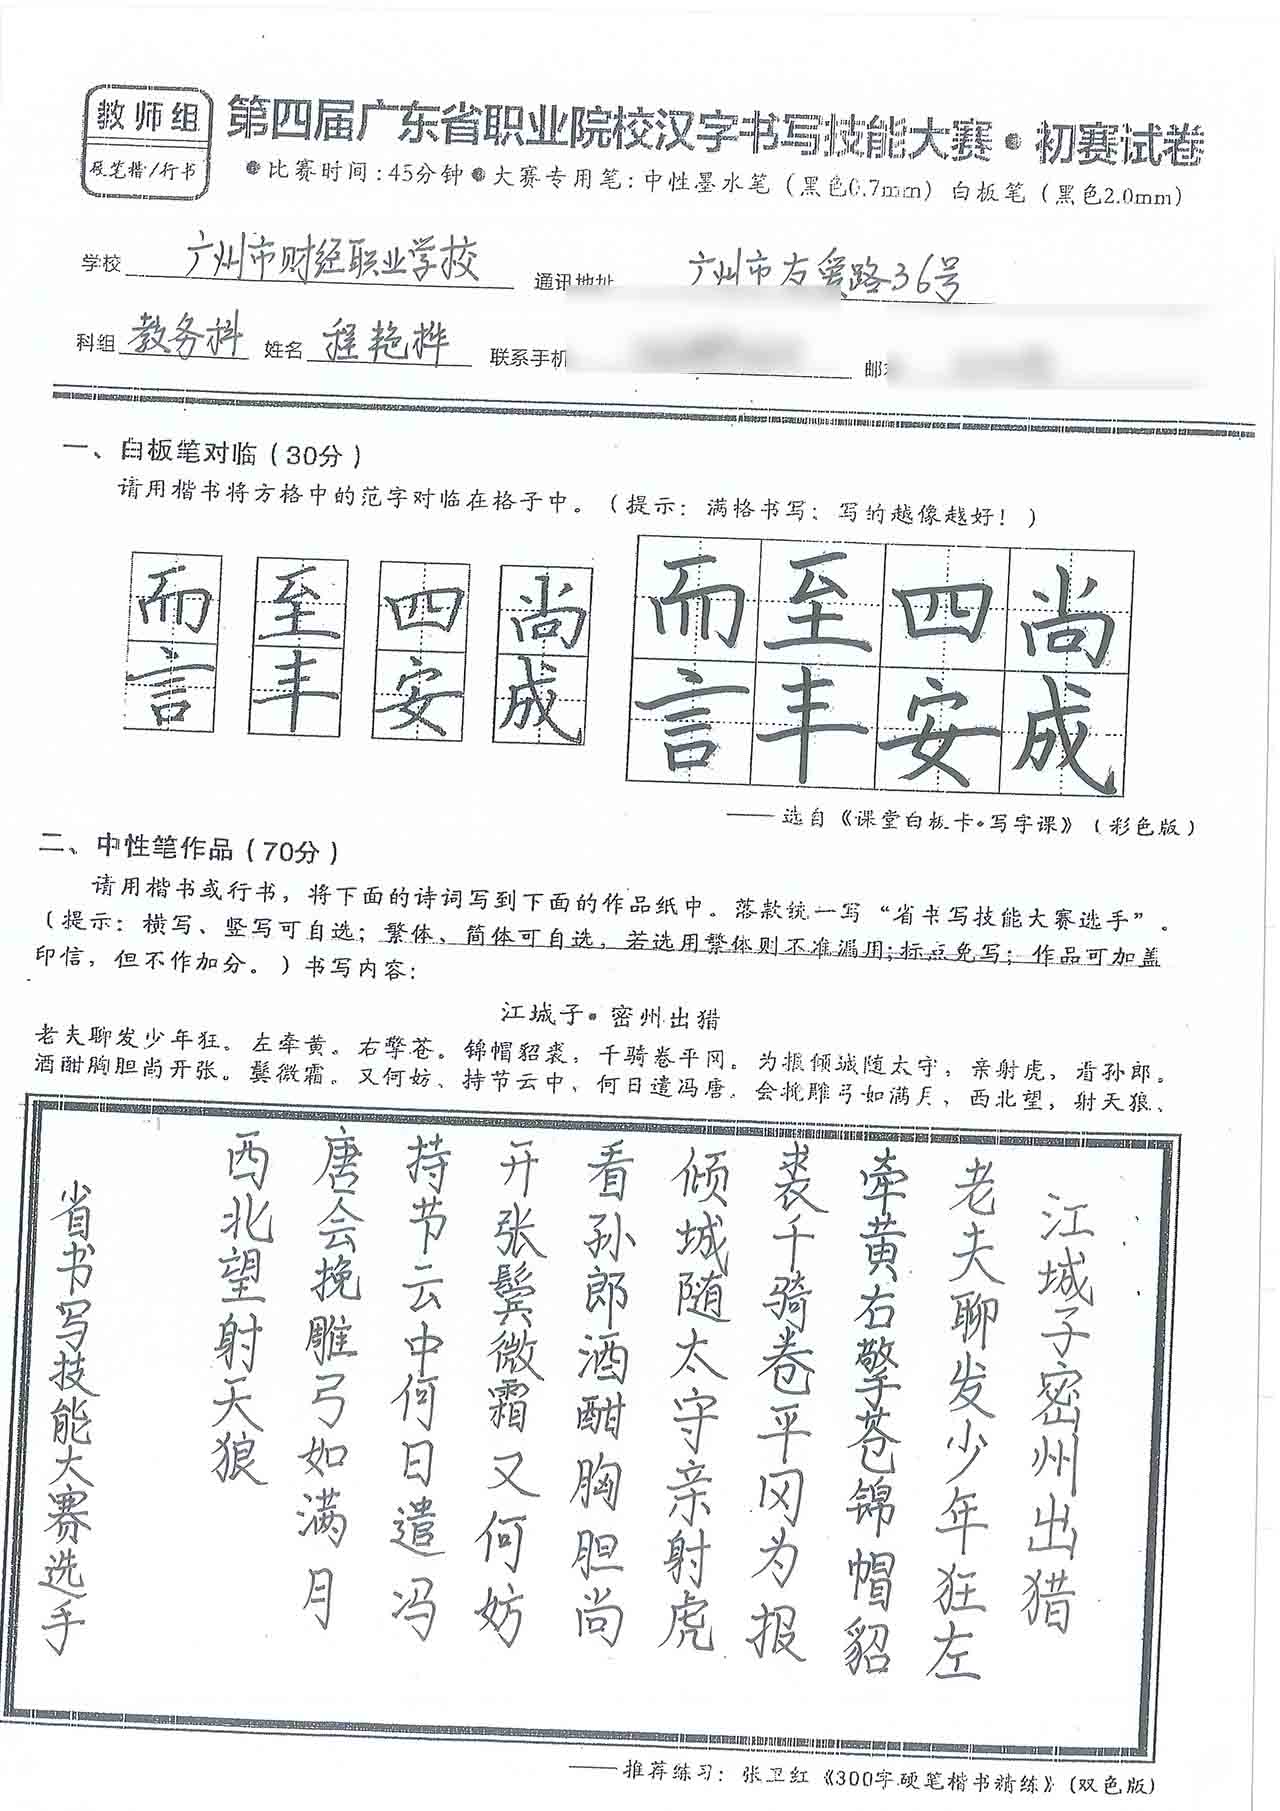 教师组
硬笔楷/行书
第四届广东省职业院校汉字书写技能大赛·初赛试卷
●比赛时间:45分钟●大赛专用笔:中性墨水笔（黑色0.7mm）白板笔（黑色2.0mm）
学校 广州市财经职业学校 通讯地址 广州市友爱路36号
科组 教务科 姓名 程艳桦 联系手机
一、白板笔对临（30分）
请用楷书将方格中的范字对临在格子中。（提示：满格书写；写的越像越好！）
而 至 四 尚 而 至 四 尚
言 丰 安 成 言 丰 安 成
——选自《课堂白板卡·写字课》（彩色版）
二、中性笔作品（70分）
请用楷书或行书，将下面的诗词写到下面的作品纸中。落款统一写“省书写技能大赛选手”。
（提示：横写、竖写可自选；繁体、简体可自选，若选用繁体则不准漏用;标点免写；作品可加盖
印信，但不作加分。）书写内容：
江城子·密州出猎
老夫聊发少年狂。左牵黄。右擎苍。锦帽貂裘，千骑卷平冈。为报倾城随太守，亲射虎，看孙郎。
酒酣胸胆尚开张。鬓微霜。又何妨、持节云中、何日遣冯唐。会挽雕弓如满月、西北望，射天狼、
江城子密州出猎
老夫聊发少年狂左
牵黄右擎苍锦帽貂
裘千骑卷平冈为报
倾城随太守亲射虎
看孙郎酒酣胸胆尚
开张鬓微霜又何妨
持节云中何日遣冯
唐会挽雕弓如满月
西北望射天狼
省书写技能大赛选手
——推荐练习：张卫红《300字硬笔楷书精练》(双色版)